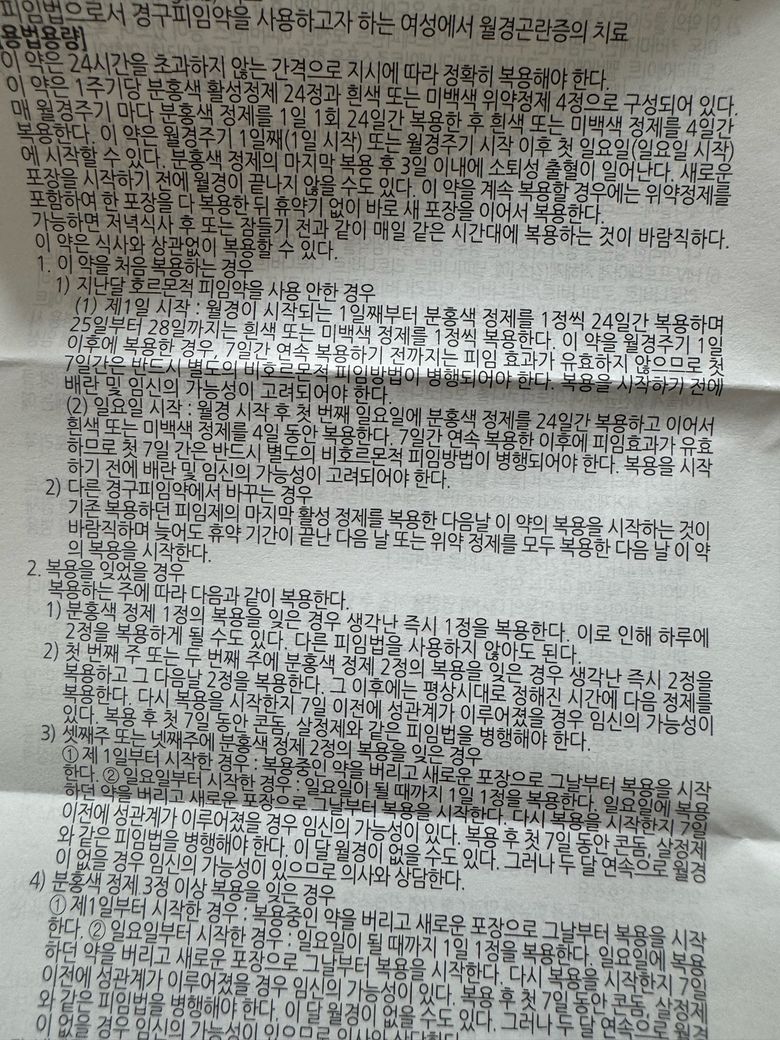 피임법으로서 경구피임약을 사용하고자 하는 여성에서 월경곤란증의 치료
[용법용량]
이 약은 24시간을 초과하지 않는 간격으로 지시에 따라 정확히 복용해야 한다.
이 약은 1주기당 분홍색 활성정제 24정과 흰색 또는 미백색 위약정제 4정으로 구성되어 있다.
매 월경주기 마다 분홍색 정제를 1일 1회 24일간 복용한 후 흰색 또는 미백색 정제를 4일간
복용한다. 이 약은 월경주기 1일째(1일 시작) 또는 월경주기 시작 이후 첫 일요일(일요일 시작)
에 시작할 수 있다. 분홍색 정제의 마지막 복용 후 3일 이내에 소퇴성 출혈이 일어난다. 새로운
포장을 시작하기 전에 월경이 끝나지 않을 수도 있다. 이 약을 계속 복용할 경우에는 위약정제를
포함하여 한 포장을 다 복용한 뒤 휴약기 없이 바로 새 포장을 이어서 복용한다.
가능하면 저녁식사 후 또는 잠들기 전과 같이 매일 같은 시간대에 복용하는 것이 바람직하다.
이 약은 식사와 상관없이 복용할 수 있다.
1. 이 약을 처음 복용하는 경우
1) 지난달 호르몬적 피임약을 사용 안한 경우
(1) 제1일 시작 : 월경이 시작되는 1일째부터 분홍색 정제를 1정씩 24일간 복용하며
25일부터 28일까지는 흰색 또는 미백색 정제를 1정씩 복용한다. 이 약을 월경주기 1일
이후에 복용한 경우, 7일간 연속 복용하기 전까지는 피임 효과가 유효하지 않으므로 첫
7일간은 반드시 별도의 비호르몬적 피임방법이 병행되어야 한다. 복용을 시작하기 전에
배란 및 임신의 가능성이 고려되어야 한다.
(2) 일요일 시작 : 월경 시작 후 첫 번째 일요일에 분홍색 정제를 24일간 복용하고 이어서
흰색 또는 미백색 정제를 4일 동안 복용한다. 7일간 연속 복용한 이후에 피임효과가 유효
하므로 첫 7일 간은 반드시 별도의 비호르몬적 피임방법이 병행되어야 한다. 복용을 시작
하기 전에 배란 및 임신의 가능성이 고려되어야 한다.
2) 다른 경구피임약에서 바꾸는 경우
기존 복용하던 피임제의 마지막 활성 정제를 복용한 다음날 이 약의 복용을 시작하는 것이
바람직하며 늦어도 휴약 기간이 끝난 다음 날 또는 위약 정제를 모두 복용한 다음 날 이 약
의 복용을 시작한다.
2. 복용을 잊었을 경우
복용하는 주에 따라 다음과 같이 복용한다.
1) 분홍색 정제 1정의 복용을 잊은 경우 생각난 즉시 1정을 복용한다. 이로 인해 하루에
2정을 복용하게 될 수도 있다. 다른 피임법을 사용하지 않아도 된다.
2) 첫 번째 주 또는 두 번째 주에 분홍색 정제 2정의 복용을 잊은 경우 생각난 즉시 2정을
복용하고 그 다음날 2정을 복용한다. 그 이후에는 평상시대로 정해진 시간에 다음 정제를
복용한다. 다시 복용을 시작한지 7일 이전에 성관계가 이루어졌을 경우 임신의 가능성이
있다. 복용 후 첫 7일 동안 콘돔, 살정제와 같은 피임법을 병행해야 한다.
3) 셋째주 또는 넷째주에 분홍색 정제 2정의 복용을 잊은 경우
① 제 1일부터 시작한 경우 : 복용중인 약을 버리고 새로운 포장으로 그날부터 복용을 시작
한다. ② 일요일부터 시작한 경우 : 일요일이 될 때까지 1일 1정을 복용한다. 일요일에 복용
하던 약을 버리고 새로운 포장으로 그날부터 복용을 시작한다. 다시 복용을 시작한지 7일
이전에 성관계가 이루어졌을 경우 임신의 가능성이 있다. 복용 후 첫 7일 동안 콘돔, 살정제
와 같은 피임법을 병행해야 한다. 이 달 월경이 없을 수도 있다. 그러나 두 달 연속으로 월경
이 없을 경우 임신의 가능성이 있으므로 의사와 상담한다.
4) 분홍색 정제 3정 이상 복용을 잊은 경우
① 제1일부터 시작한 경우 : 복용중인 약을 버리고 새로운 포장으로 그날부터 복용을 시작
한다. ② 일요일부터 시작한 경우 : 일요일이 될 때까지 1일 1정을 복용한다. 일요일에 복용
하던 약을 버리고 새로운 포장으로 그날부터 복용을 시작한다. 다시 복용을 시작한지 7일
이전에 성관계가 이루어졌을 경우 임신의 가능성이 있다. 복용 후 첫 7일 동안 콘돔, 살정제
와 같은 피임법을 병행해야 한다. 이 달 월경이 없을 수도 있다. 그러나 두 달 연속으로 월경
이 없을 경우 임신의 가능성이 있으므로 의사와 상담한다.